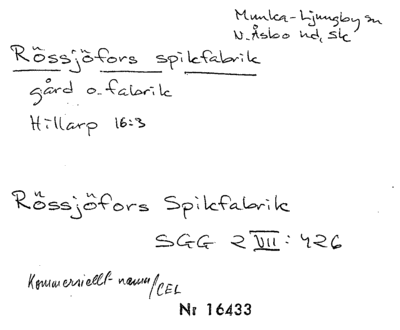 Munka-Ljungby sn
N. Åsbo hd, Sk
Rössjöfors spikfabrik
gård o. fabrik
Hillarp 16:3
Rössjöfors Spikfabrik
SGG 2 VII: 426
Kommersiellt namn/CEL
Nr 16433